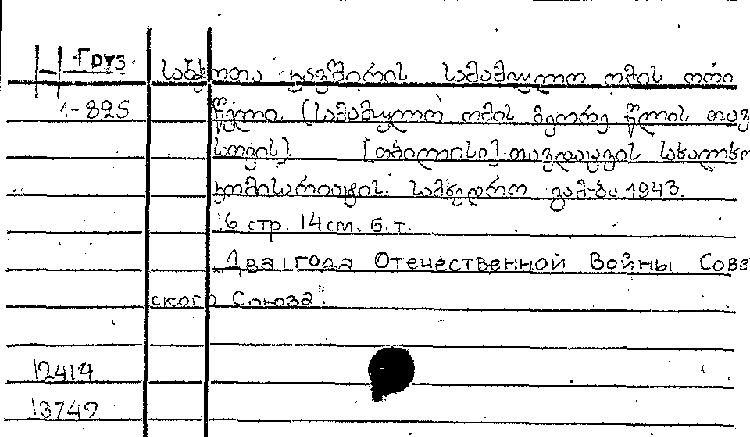 Груз
საბჭოთა კავშირის სამამულო ომის ორი
1-825 წელი. (სამამულო ომის მეორე წლის თავ
სთვის) [თბილისი] თავდაცვის სახალხო
კომისარიატის სამხედრო გამ-ბა 1943.
16 стр. 14 см. б.т.
Два года Отечественной Войны Сове
ского Союза.
12419
13749